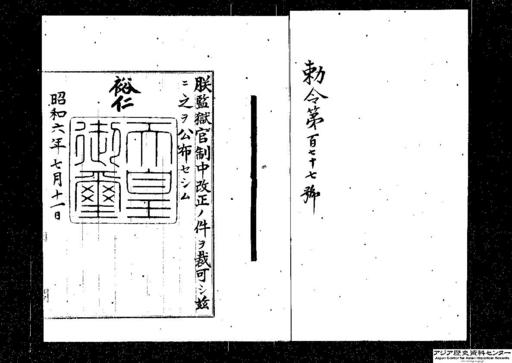 勅令第百七十七號
朕監獄官制中改正ノ件ヲ裁可シ茲
ニ之ヲ公布セシム
裕仁
天皇御璽
昭和六年七月十一日
アジア歴史資料センター
Japan Center for Asian Historical Records